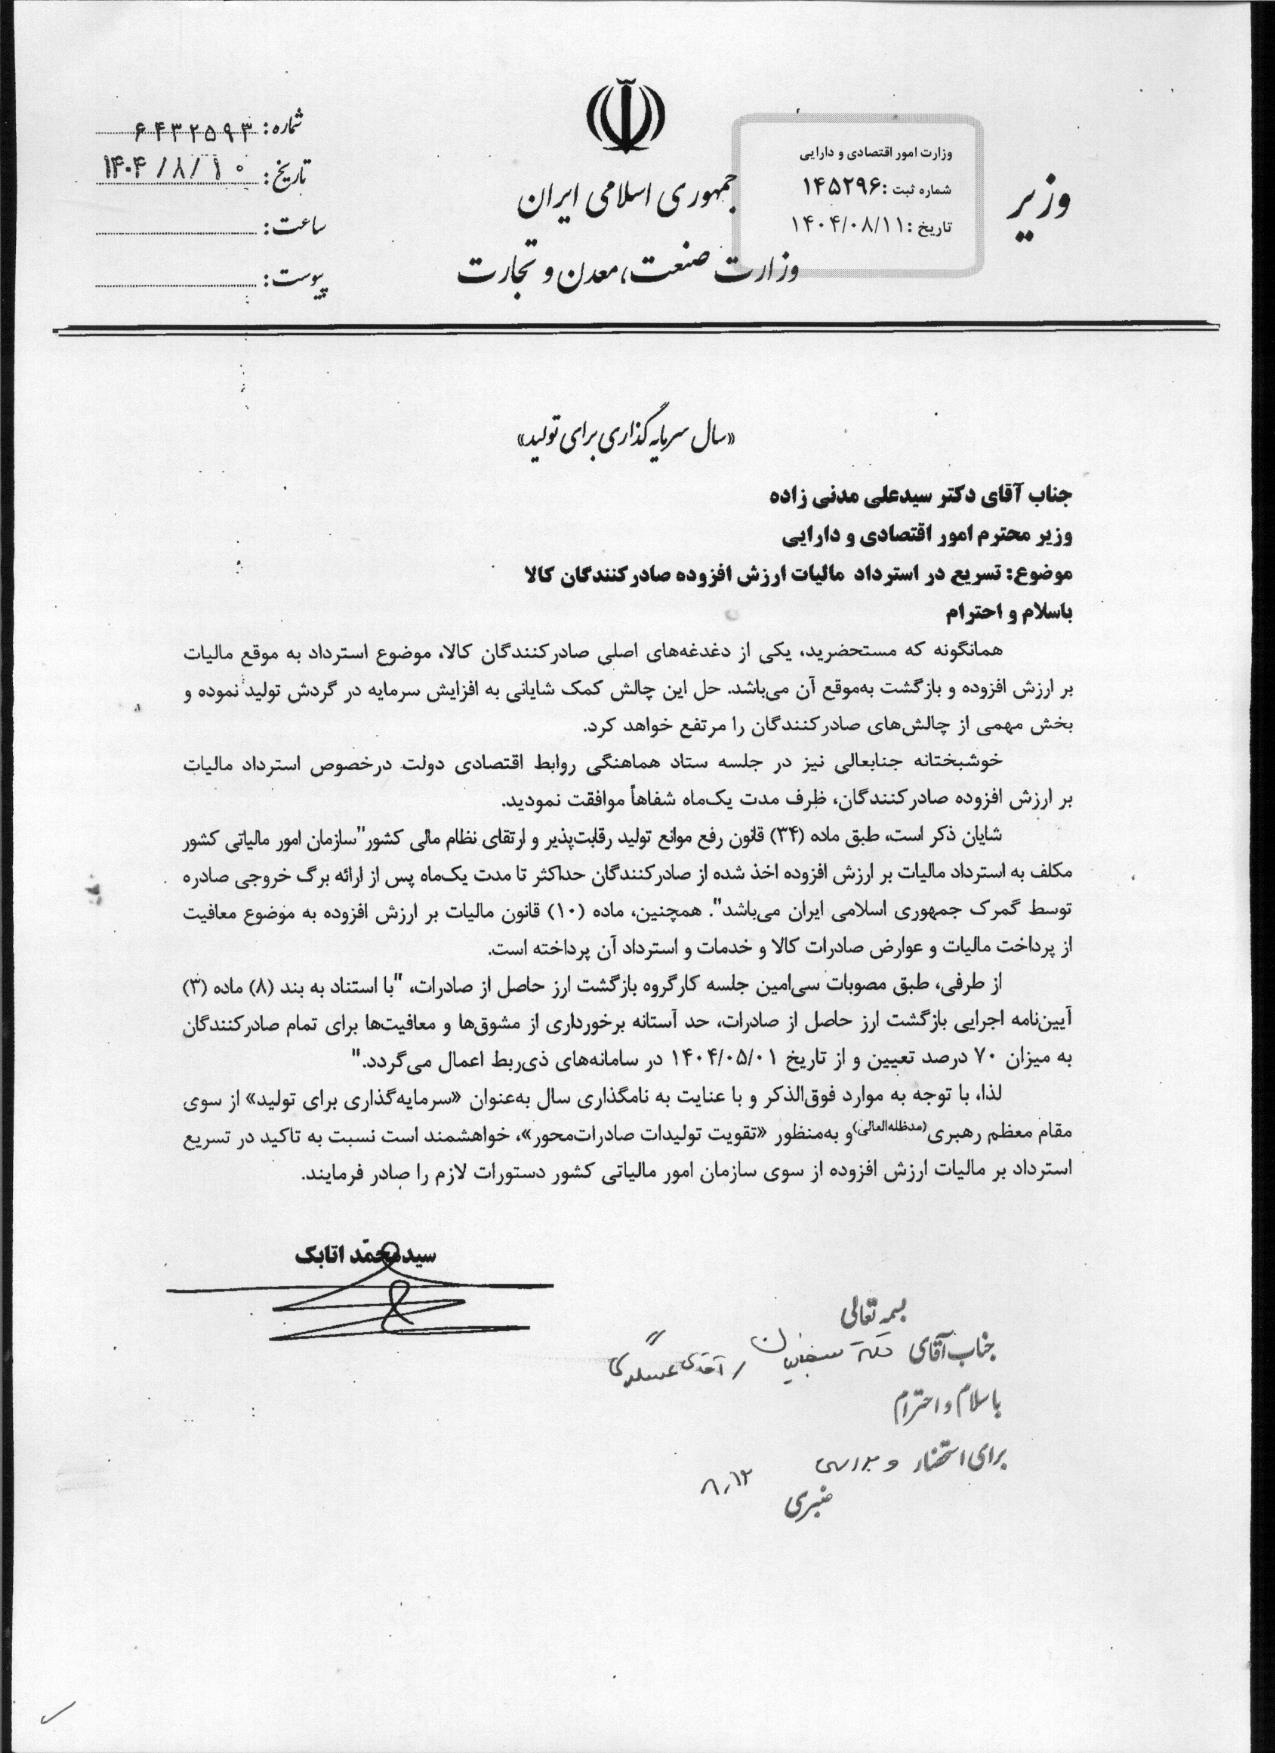 جمهوری اسلامی ایران
وزارت صنعت، معدن و تجارت
وزیر
وزارت امور اقتصادی و دارایی
شماره ثبت :۱۴۵۲۹۶
تاریخ :۱۴۰۴/۰۸/۱۱
شماره: ۶۴۳۲۵۹۳
تاریخ: ۱۴۰۴/۸/۱۰
ساعت:
پیوست:
«سال سرمایه گذاری برای تولید»
جناب آقای دکتر سیدعلی مدنی زاده
وزیر محترم امور اقتصادی و دارایی
موضوع: تسریع در استرداد مالیات ارزش افزوده صادرکنندگان کالا
باسلام و احترام
همانگونه که مستحضرید، یکی از دغدغه‌های اصلی صادرکنندگان کالا، موضوع استرداد به موقع مالیات
بر ارزش افزوده و بازگشت به‌موقع آن می‌باشد. حل این چالش کمک شایانی به افزایش سرمایه در گردش تولید نموده و
بخش مهمی از چالش‌های صادرکنندگان را مرتفع خواهد کرد.
خوشبختانه جنابعالی نیز در جلسه ستاد هماهنگی روابط اقتصادی دولت درخصوص استرداد مالیات
بر ارزش افزوده صادرکنندگان، ظرف مدت یک‌ماه شفاهاً موافقت نمودید.
شایان ذکر است، طبق ماده (۳۴) قانون رفع موانع تولید رقابت‌پذیر و ارتقای نظام مالی کشور"سازمان امور مالیاتی کشور
مکلف به استرداد مالیات بر ارزش افزوده اخذ شده از صادرکنندگان حداکثر تا مدت یک‌ماه پس از ارائه برگ خروجی صادره
توسط گمرک جمهوری اسلامی ایران می‌باشد". همچنین، ماده (۱۰) قانون مالیات بر ارزش افزوده به موضوع معافیت
از پرداخت مالیات و عوارض صادرات کالا و خدمات و استرداد آن پرداخته است.
از طرفی، طبق مصوبات سی‌امین جلسه کارگروه بازگشت ارز حاصل از صادرات، "با استناد به بند (۸) ماده (۳)
آیین‌نامه اجرایی بازگشت ارز حاصل از صادرات، حد آستانه برخورداری از مشوق‌ها و معافیت‌ها برای تمام صادرکنندگان
به میزان ۷۰ درصد تعیین و از تاریخ ۱۴۰۴/۰۵/۰۱ در سامانه‌های ذی‌ربط اعمال می‌گردد."
لذا، با توجه به موارد فوق‌الذکر و با عنایت به نامگذاری سال به‌عنوان «سرمایه‌گذاری برای تولید» از سوی
مقام معظم رهبری(مدظله‌العالی)و به‌منظور «تقویت تولیدات صادرات‌محور»، خواهشمند است نسبت به تاکید در تسریع
استرداد بر مالیات ارزش افزوده از سوی سازمان امور مالیاتی کشور دستورات لازم را صادر فرمایند.
سیدمحمّد اتابک
بسمه تعالی
جناب آقای دکتر / آقای عسگری
باسلام و احترام
برای استحضار و بررسی
۸/۱۲